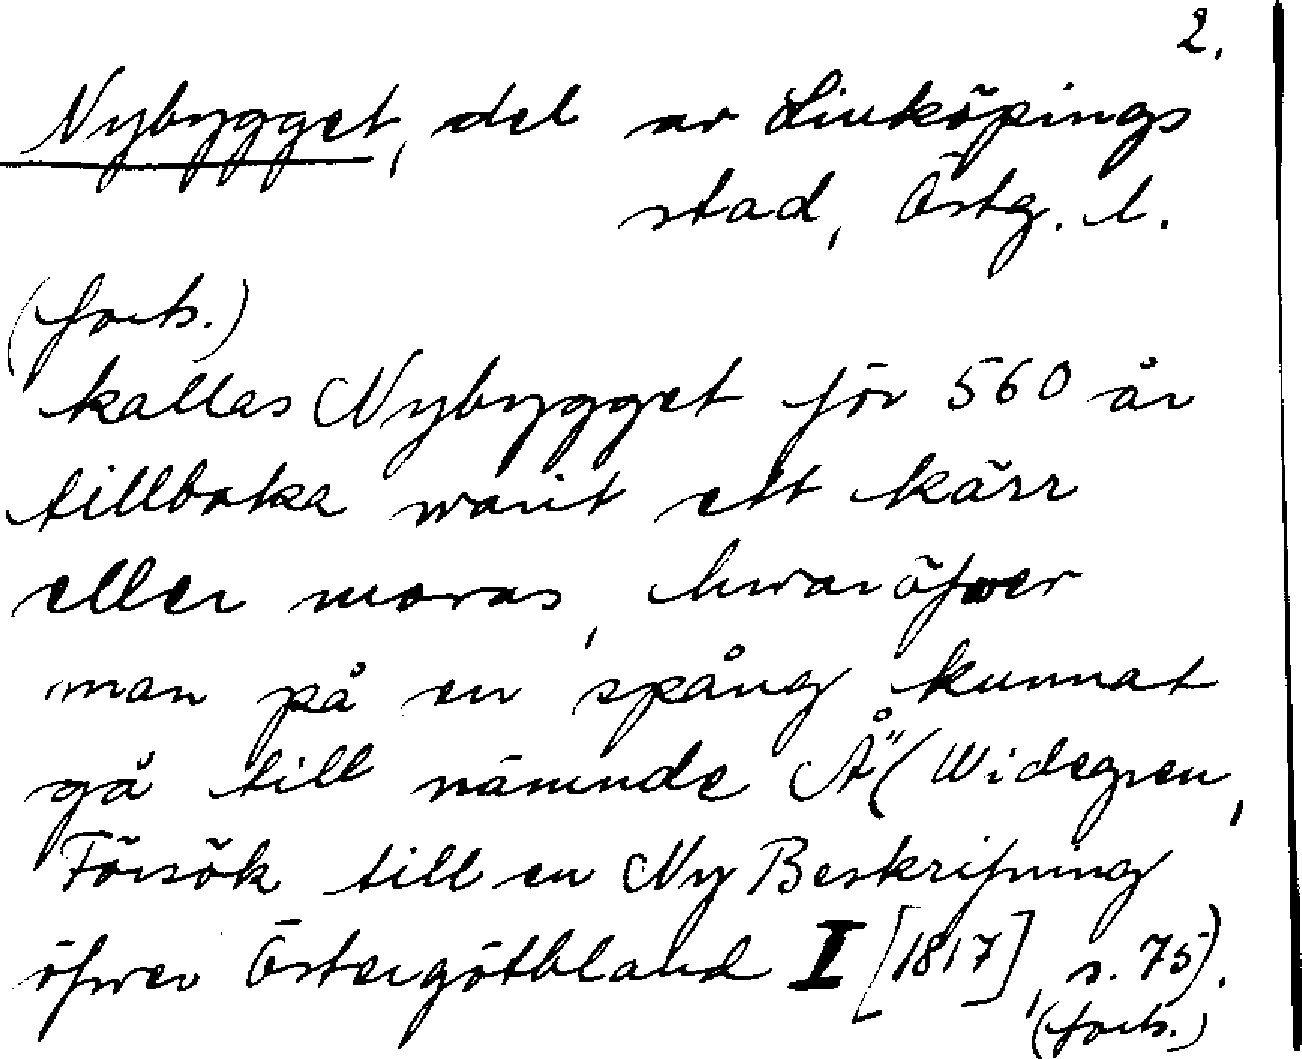 2.
Nybygget, del av Linköpings
stad, Östg. l.
(forts.)
kallas Nybygget för 560 år
tillbaka warit ett kärr
eller moras, hwaröfwer
man på en spång kunnat
gå till nämnde Å" (Widegren,
Försök till en Ny Beskrifning
öfwer Östergöthland I [1817], s. 75).
(forts.)